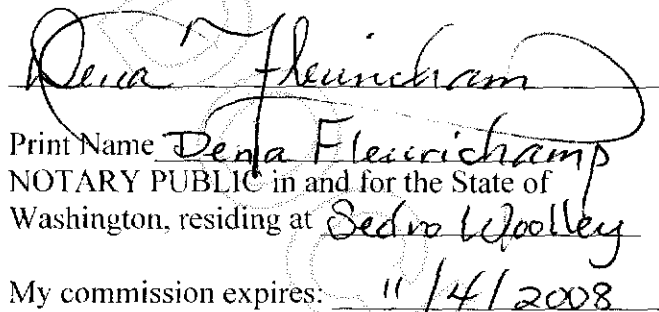 Dena Fleurichamp
Print Name Dena Fleurichamp
NOTARY PUBLIC in and for the State of
Washington, residing at Sedro Woolley
My commission expires: 11/4/2008